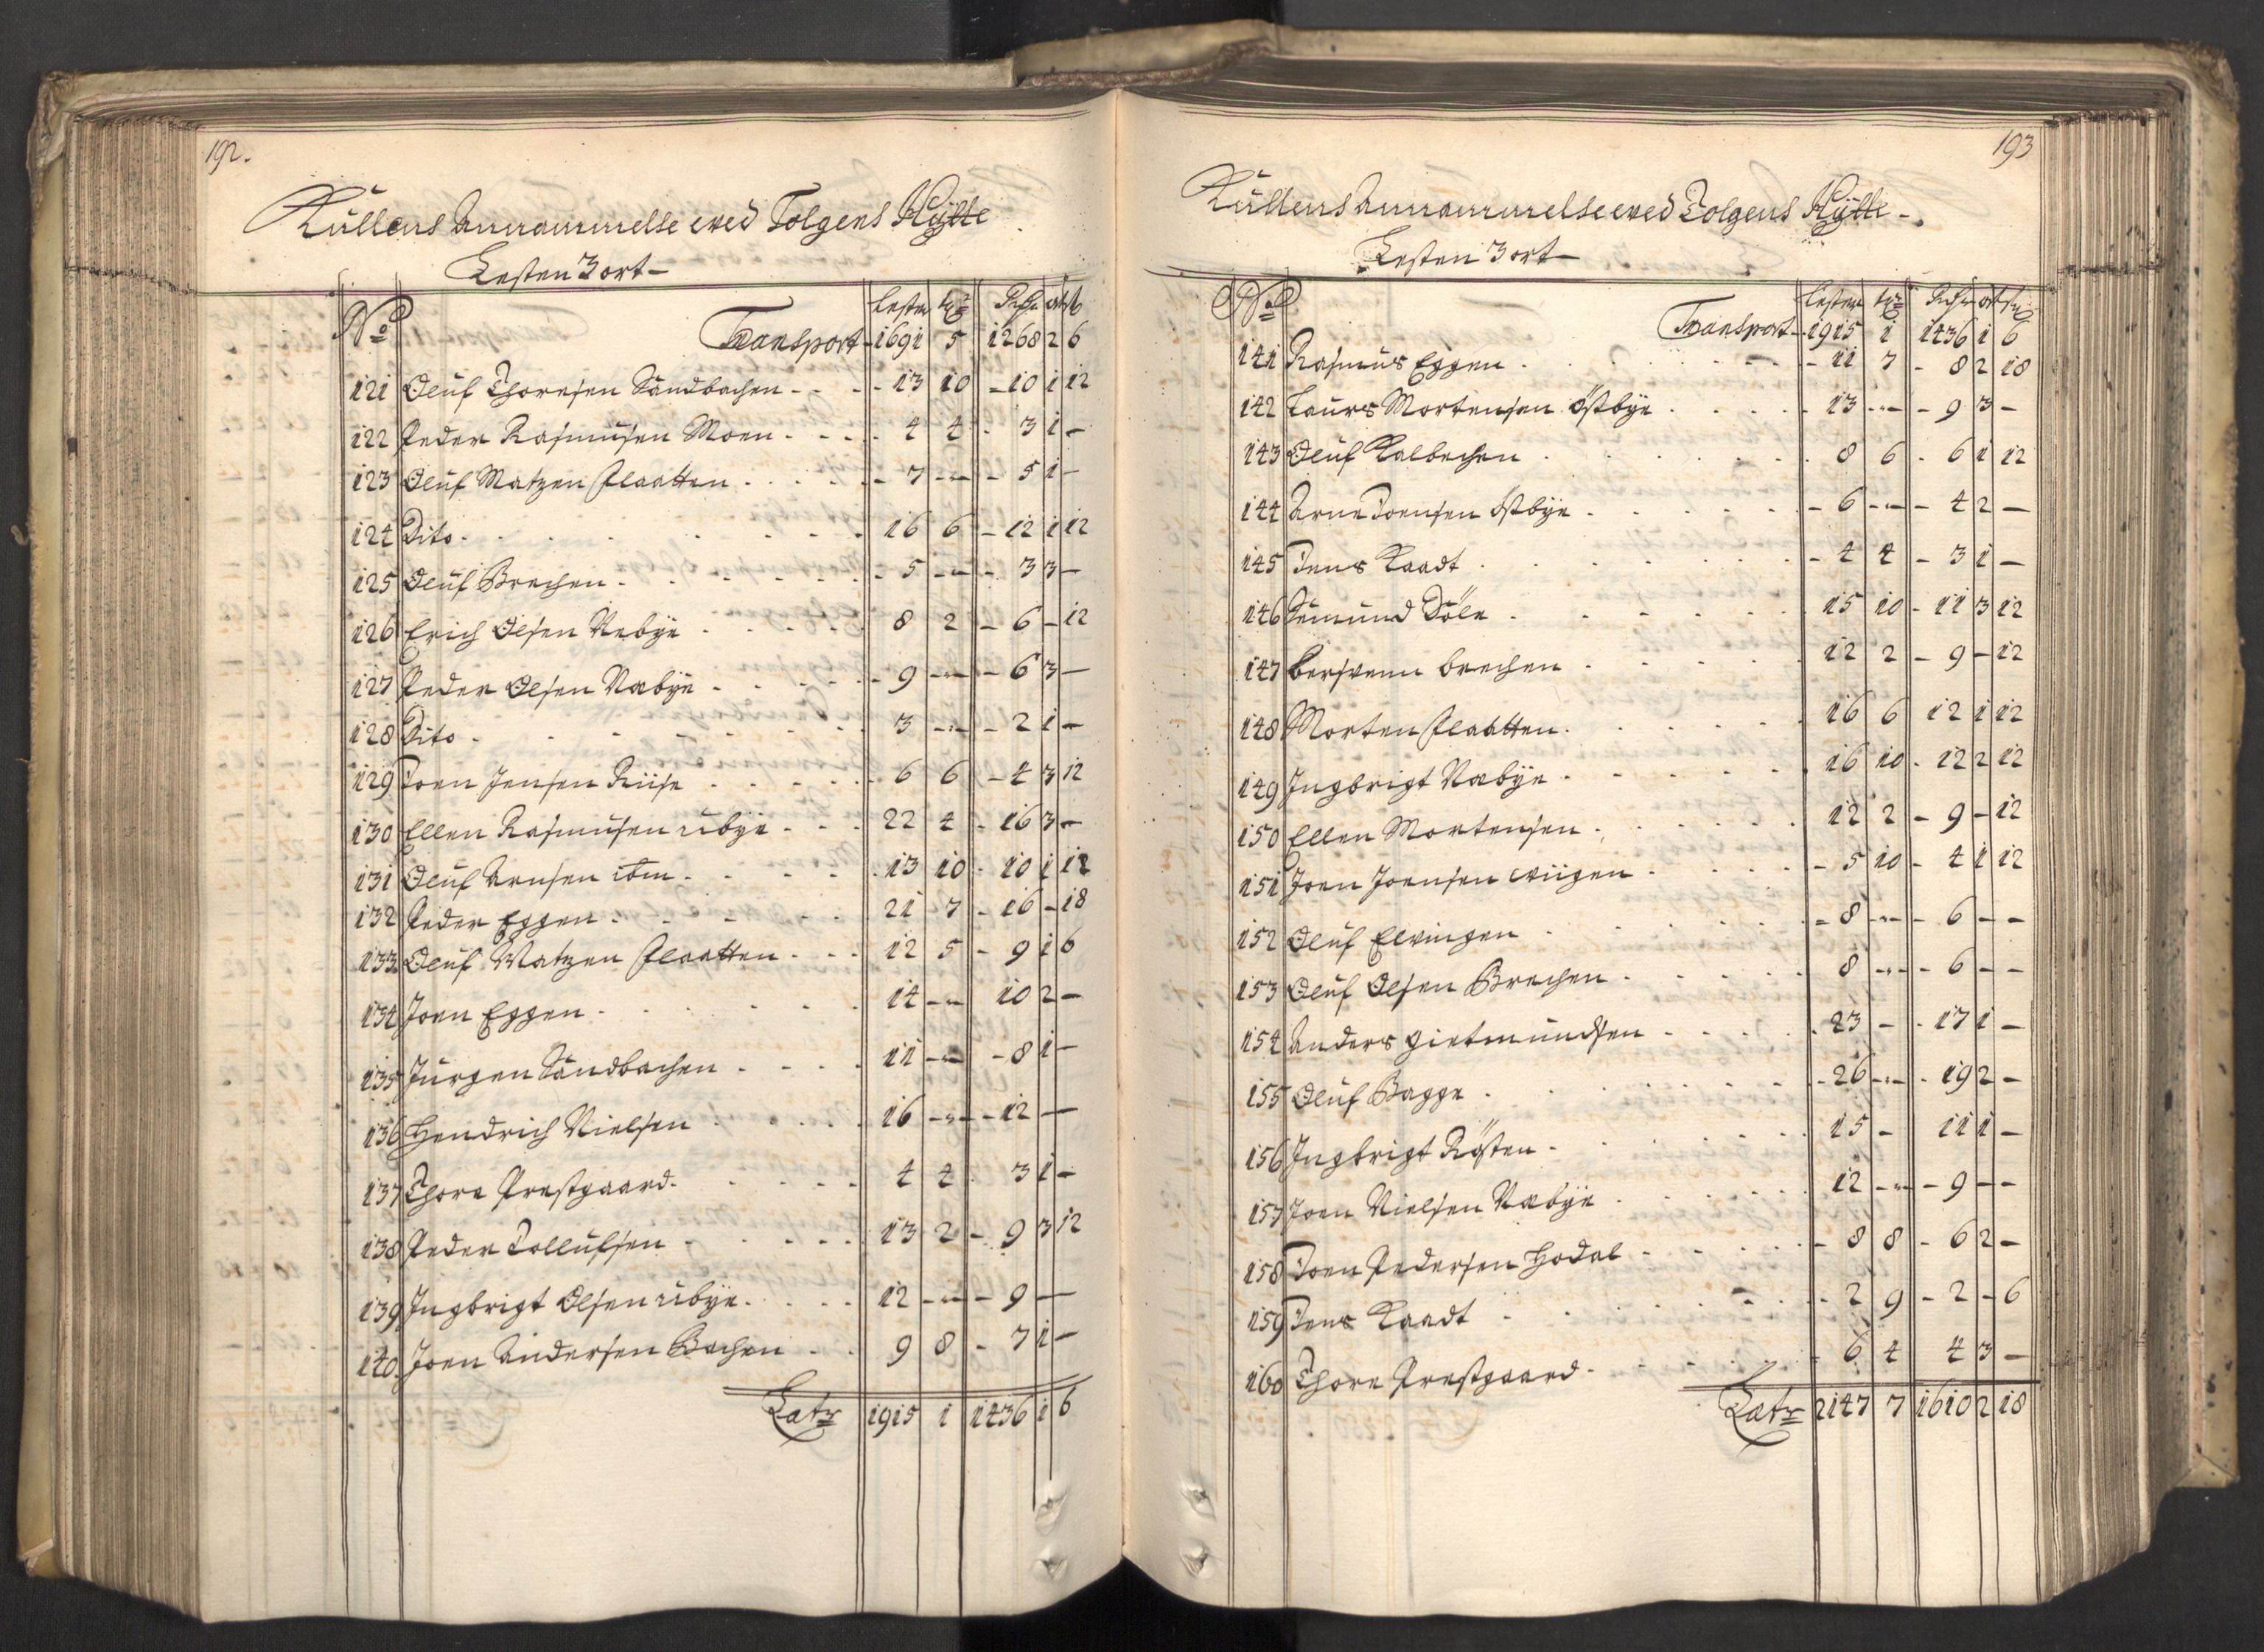 192.
Kullens Annammelse wed Tolgens Hytte
Lesten 3 ort –
No Lester tr Rdr ort ß
Transport – 1691 5 1268 2 6
121 Oluf Thoresen Sandbachen - - - 13 10 - 10 1 12
122 Peder Rasmusen Moen . . . . 4 4 . 3 1 –
123 Oluf Matzen Plaatten . . . . . - 7 - - - 5 1 –
124 Dito . . . . . . 16 6 - 12 1 12
125 Oluf Brechen . . . . . - 5 - - - 3 3 –
126 Erich Olsen Nebye . . . . . 8 2 - 6 - 12
127 Peder Olsen Næbye . . . . - 9 - - - 6 3 –
128 Dito . . . . . . 3 - - - 2 1 –
129 Joen Jensen Riise . . . . . 6 6 - 4 3 12
130 Ellen Rasmusen Ubye . . . 22 4 - 16 3 –
131 Oluf Arnsen ibm . . . . . 13 10 - 10 1 12
132 Peder Eggen . . . . . 21 7 - 16 - 18
133 Oluf Matzen Plaatten . . . 12 5 - 9 1 6
134 Joen Eggen . . . . . . 14 - - 10 2 –
135 Jürgen Sandbachen . . . . 11 - - - 8 1 –
136 Hendrich Nielsen . . . . . 16 - - - 12 —
137 Thore Prestgaard . . . . . 4 4 . 3 1 –
138 Peder Tollufsen - . . . . 13 2 - 9 3 12
139 Ingbrigt Olsen Ubye . . . . 12 - - - 9 —
140 Joen Andersen Bachen . . . 9 8 - 7 1 –
Latr 1915 1 1436 1 6
193
Kullens Annammelse wed Tolgens Hytte –.
Lesten 3 ort –
No Lester tr Rdr ort ß
Transport – 1915 1 1436 1 6
141 Rasmus Eggen . . . . - - 11 7 - 8 2 18
142 Laurs Mortensen Östbye . . . . - 13 - - - 9 3 –
143 Oluf Kalbechen . . . . . . 8 6 . 6 1 12
144 Arne Joensen Östbye . . . . . - 6 - - - 4 2 –
145 Jens Kaadt . . . . . . - 4 4 - 3 1 –
146 Semund Döle . . . . . 15 10 - 11 3 12
147 Berswenn Brechen . . . . . 12 2 - 9 - 12
148 Morten Plaatten . . . . . 16 6 12 1 12
149 Ingbrigt Næbye . . . . . . 16 10 . 12 2 12
150 Ellen Mortensen . . . . . . 12 2 - 9 - 12
151 Joen Joensen Wiigen . . . . - 5 10 - 4 1 12
152 Oluf Elvingen . . . . . - 8 - - - 6 - –
153 Oluf Olsen Brechen . . . . . 8 - - - 6 - –
154 Anders Gietmundsen . . . . . 23 – . 17 1 –
155 Oluf Bagge . . . . . . - 26 - - . 19 2 –
156 Ingbrigt Rösten . . . . . . 15 – 11 1 –
157 Joen Nielsen Næbye . . . . . 12 - - - 9 - –
158 Joen Pedersen Hodal . . . . . - 8 8 - 6 2 –
159 Jens Kaadt . . . . . . - 2 9 - 2 - 6
160 Thore Prestgaard . . . . . 6 4 4 3 –
Latr 2147 7 1610 2 18